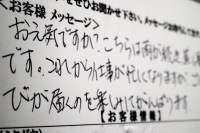 ぜひお聞かせ下さい。メッセージお待ち
【お客様 メッセージ】
お元気ですか？こちらは雨が続き、蒸し
です。これから仕事が忙しくなりますが、ご
びが届くのを楽しみにしてがんばります。
【お客様情報】